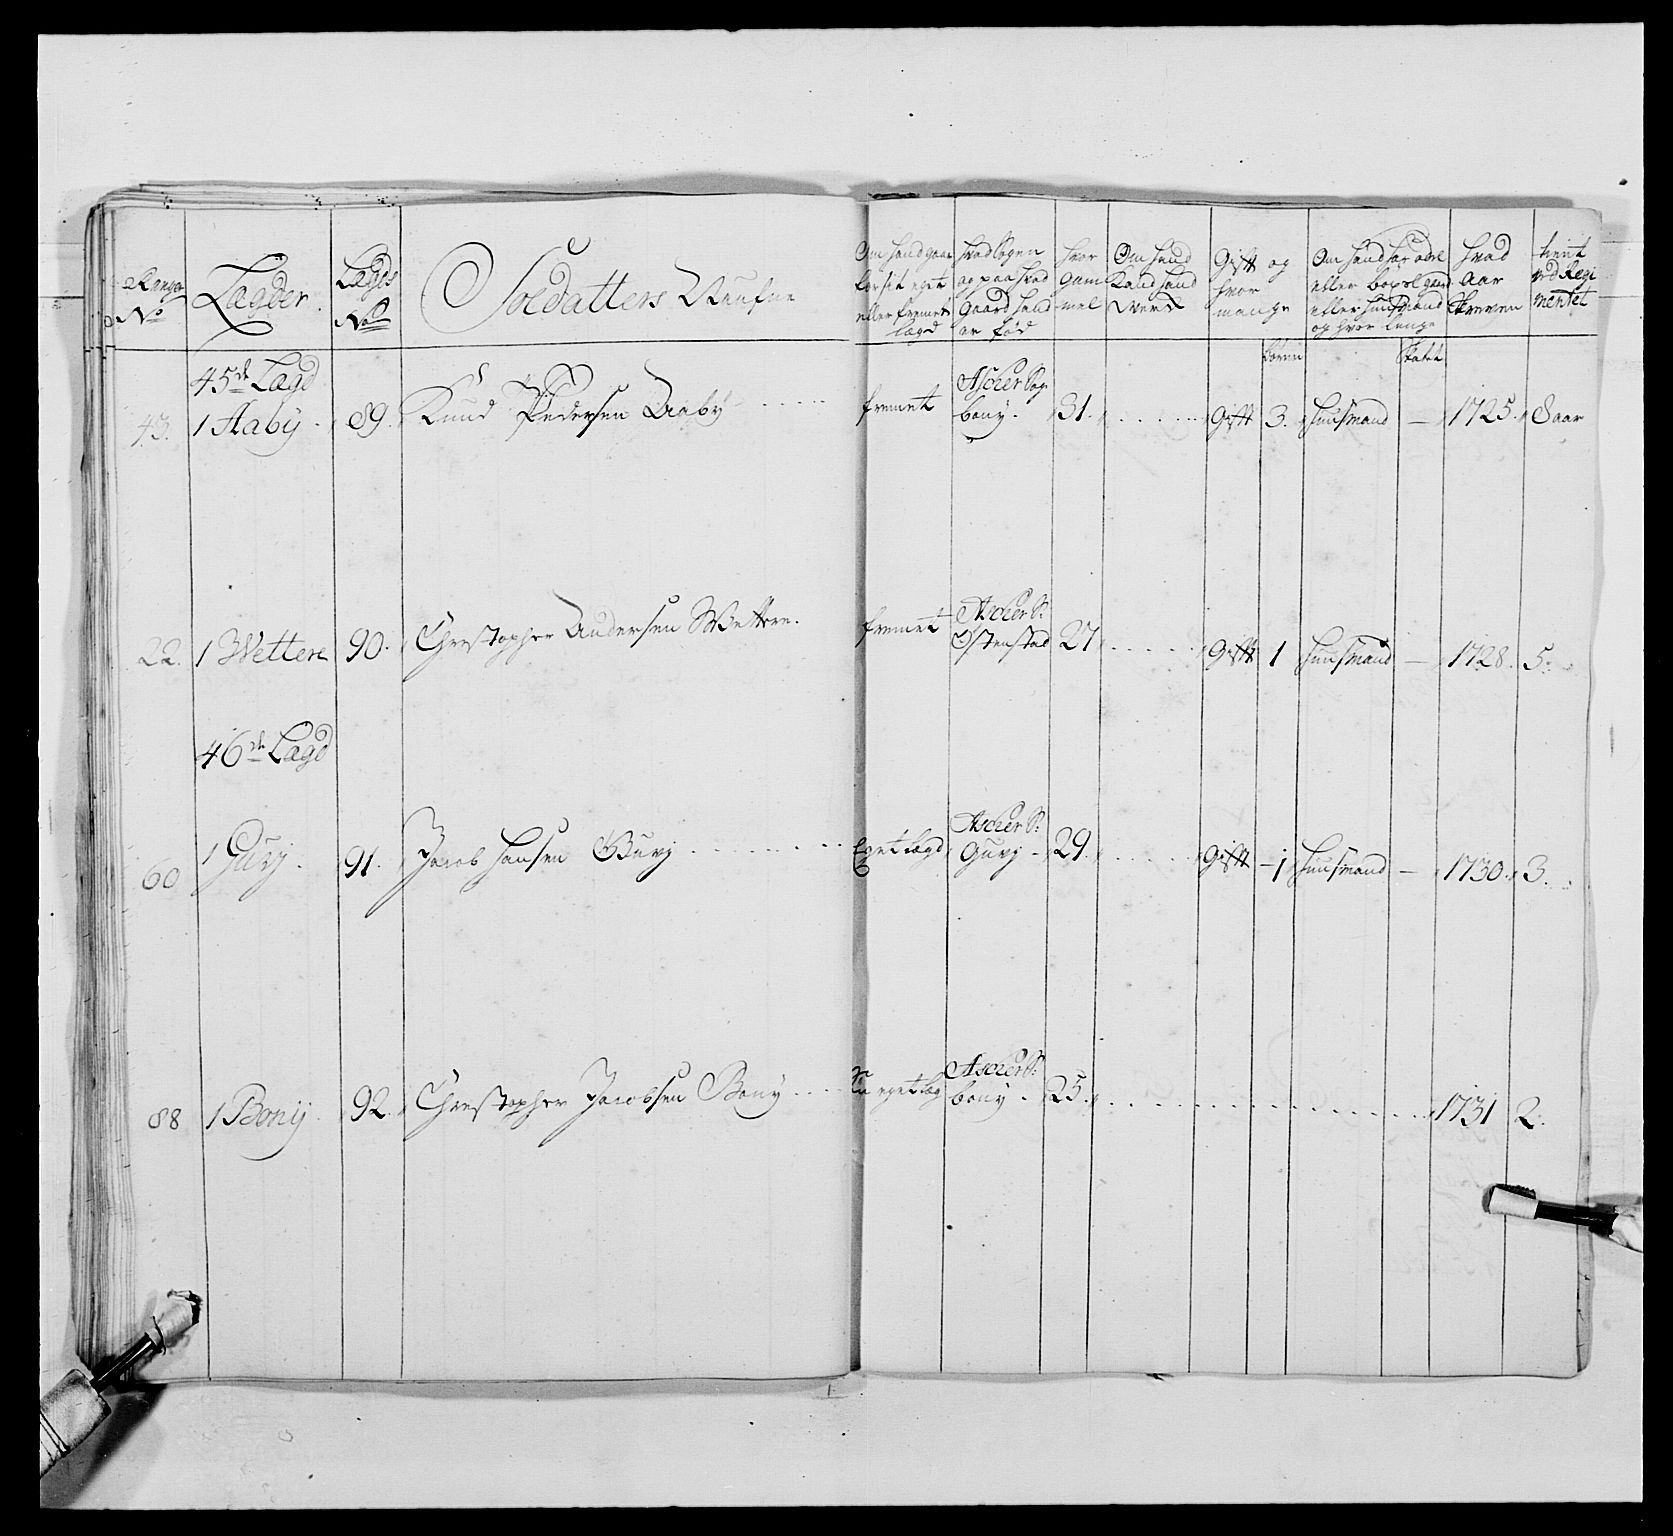 Range No
Lægder
Lægds No
Soldatters Naufne
Om hand gaar for sit eget eller fremet lægd
hvad Sogen og paa hvad Gaard hand er fød
hvor gammel
Om hand kand hand verk
Gift og hvor mange
Børn
Om hand har øde eller bøxel gaard eller huusmand og hvor lenge
hvad Aar Skreven
tient ved Regimentet
45de Lægd
43. 1 Aaby. 89. Knud Pedersen Aaby fremet Ascher Sog bony. 31. Gift 3. huusmand — 1725. 8 aar
22. 1 Wettere 90. Christopher Andersen Wettere. fremet Ascher S: Østenstad 27 Gift 1 huusmand — 1728. 5.
46de Lægd
60 1 Gurj. 91. Jacob Hansen Gurj Eget lægd Ascher S: Gurj 29. Gift 1 huusmand — 1730. 3.
88 1 Bonij. 92. Christopher Jacobsen Bony eget læg Ascher S: bony. 25. 1731 2.